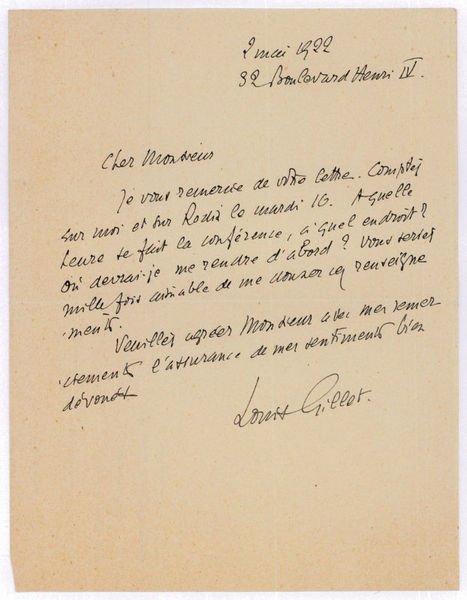 2 mai 1922
32 Boulevard Henri IV.
Cher Monsieur
Je vous remercie de votre lettre. Comptez
sur moi et sur Rodin le mardi 16. A quelle
heure se fait la conférence, à quel endroit ?
Où devrai-je me rendre d'abord ? Vous seriez
mille fois aimable de me donner ces renseigne
-ments.
Veuillez agréer Monsieur avec mes remer
-ciements l'assurance de mes sentiments bien
dévoués
Louis Gillet.